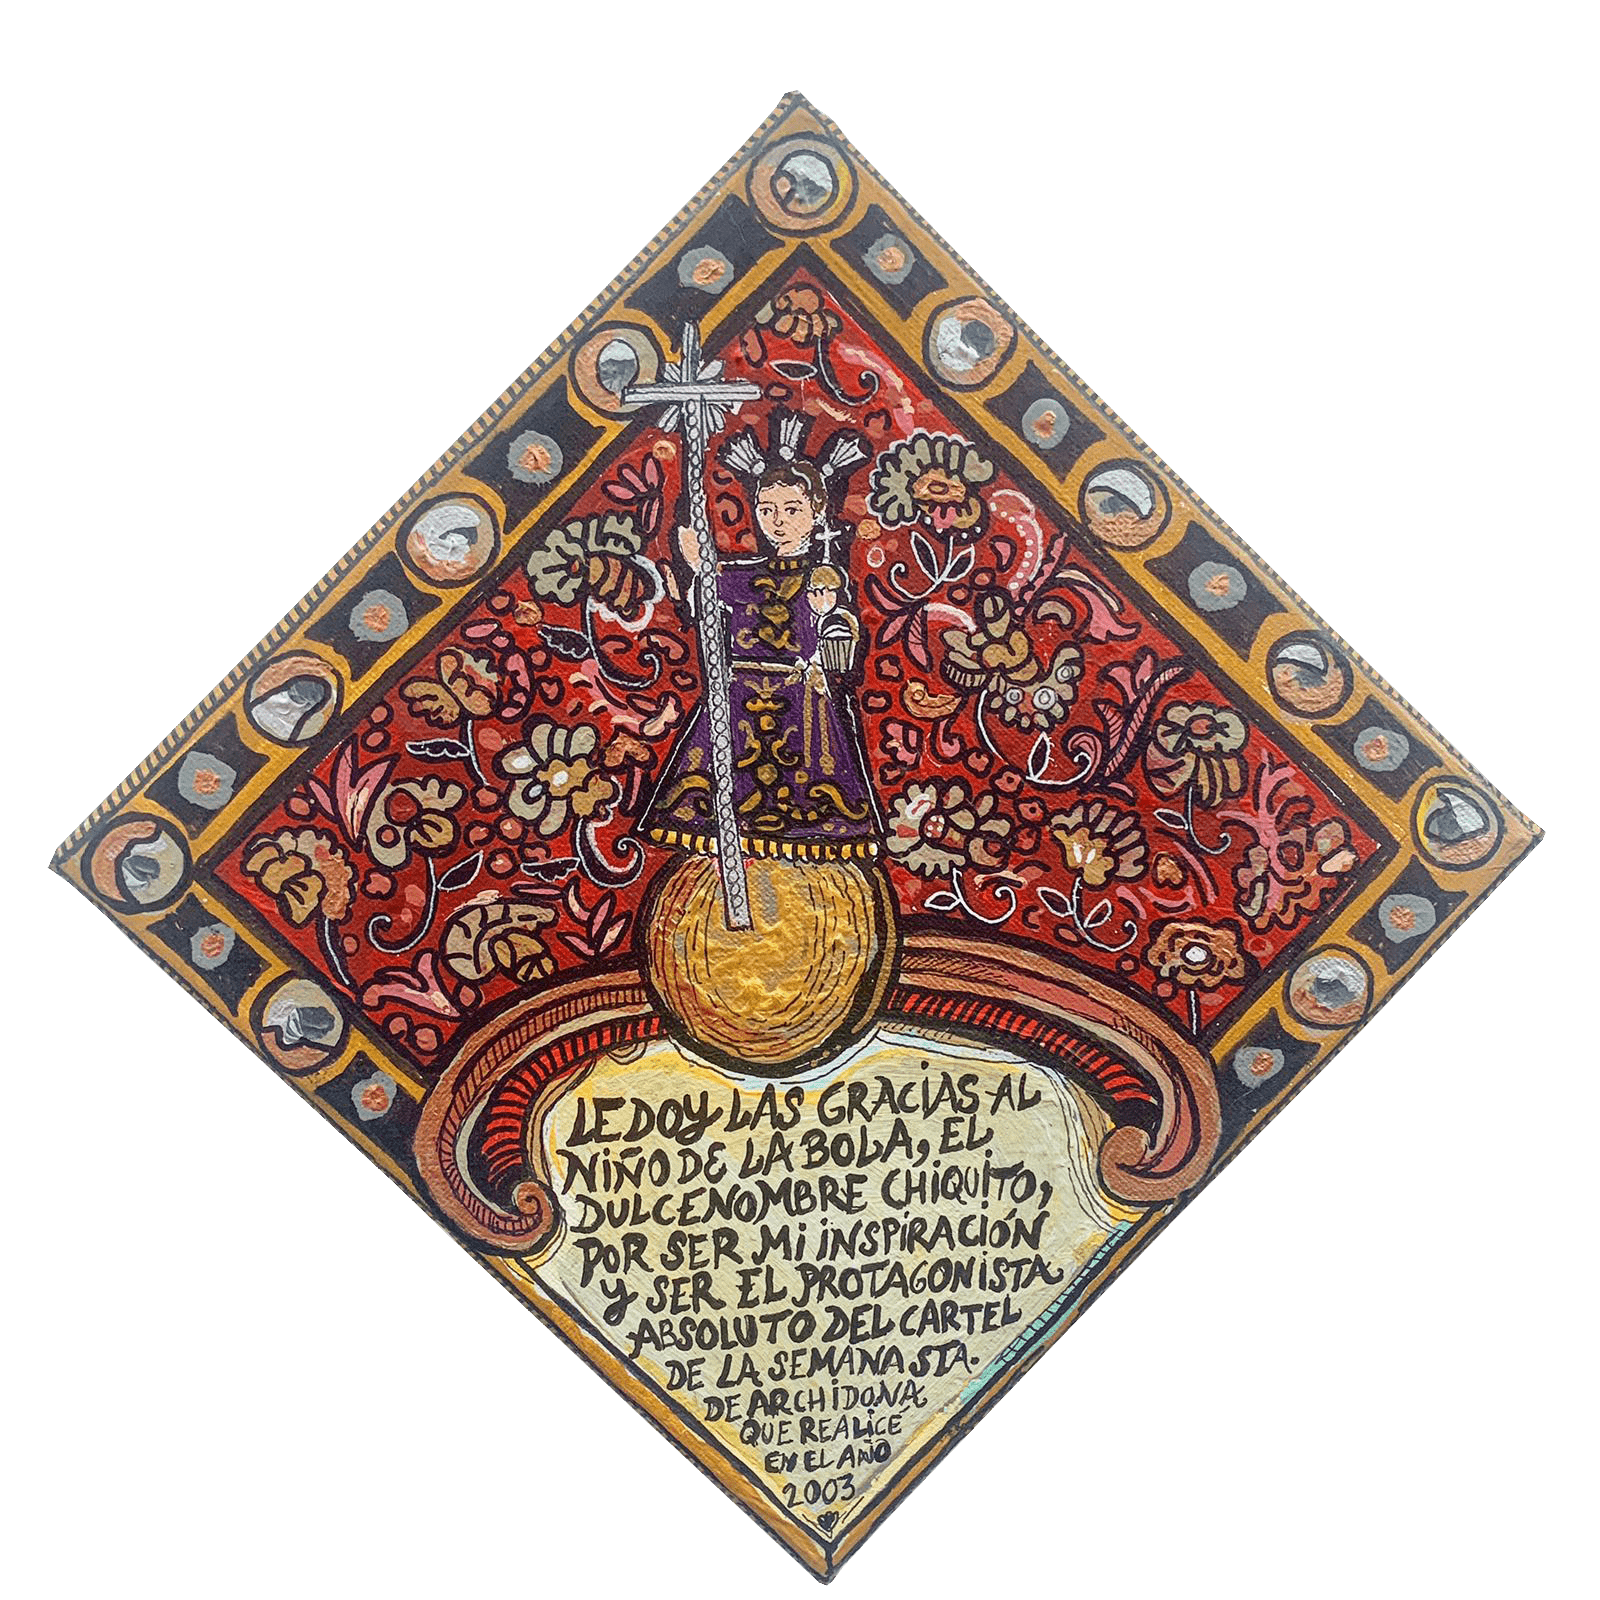 LE DOY LAS GRACIAS AL
NIÑO DE LA BOLA, EL
DULCE NOMBRE CHIQUITO,
POR SER Mi iNSPiRACiÓN
Y SER EL PROTAGONiSTA
ABSOLUTO DEL CARTEL
DE LA SEMANA STA.
DE ARCHiDONA
QUE REALiCÉ
EN EL AÑO
2003